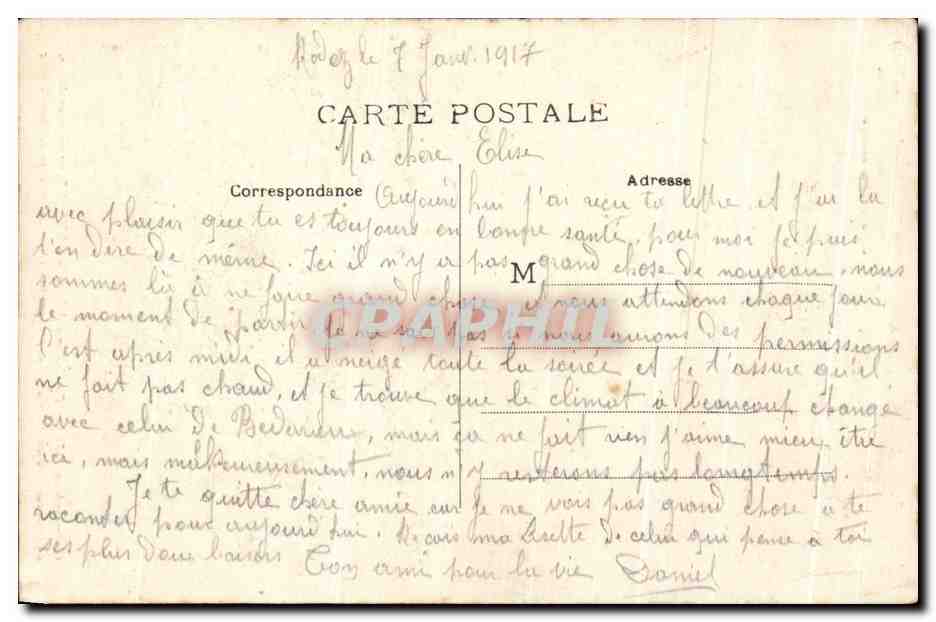 Rodez le 7 Janv. 1917
CARTE POSTALE
Ma chère Elise
Correspondance
Adresse
Aujourd'hui j'ai reçu ta lettre et j'ai lu
avec plaisir que tu es toujours en bonne santé, pour moi je puis
t'en dire de même. Ici il n'y a pas grand chose de nouveau, nous
M
sommes là à ne faire grand chose et nous attendons chaque jour
le moment de partir je ne sai pas si nous aurons des permissions
C'est après midi il a neige toute la soirée et je t'assure qu'il
ne fait pas chaud, et je trouve que le climat à beaucoup changé
avec celui de Bedarieux, mais ça ne fait rien j'aime mieu être
ici, mais malheureusement, nous n'y resterons pas longtemps.
Je te quitte chère amie car je ne vois pas grand chose a te
raconder pour aujourd'hui. Recois ma Lisette de celui qui pense à toi
ses plus doux baisers Ton ami pour la vie Daniel
CPAPHIL